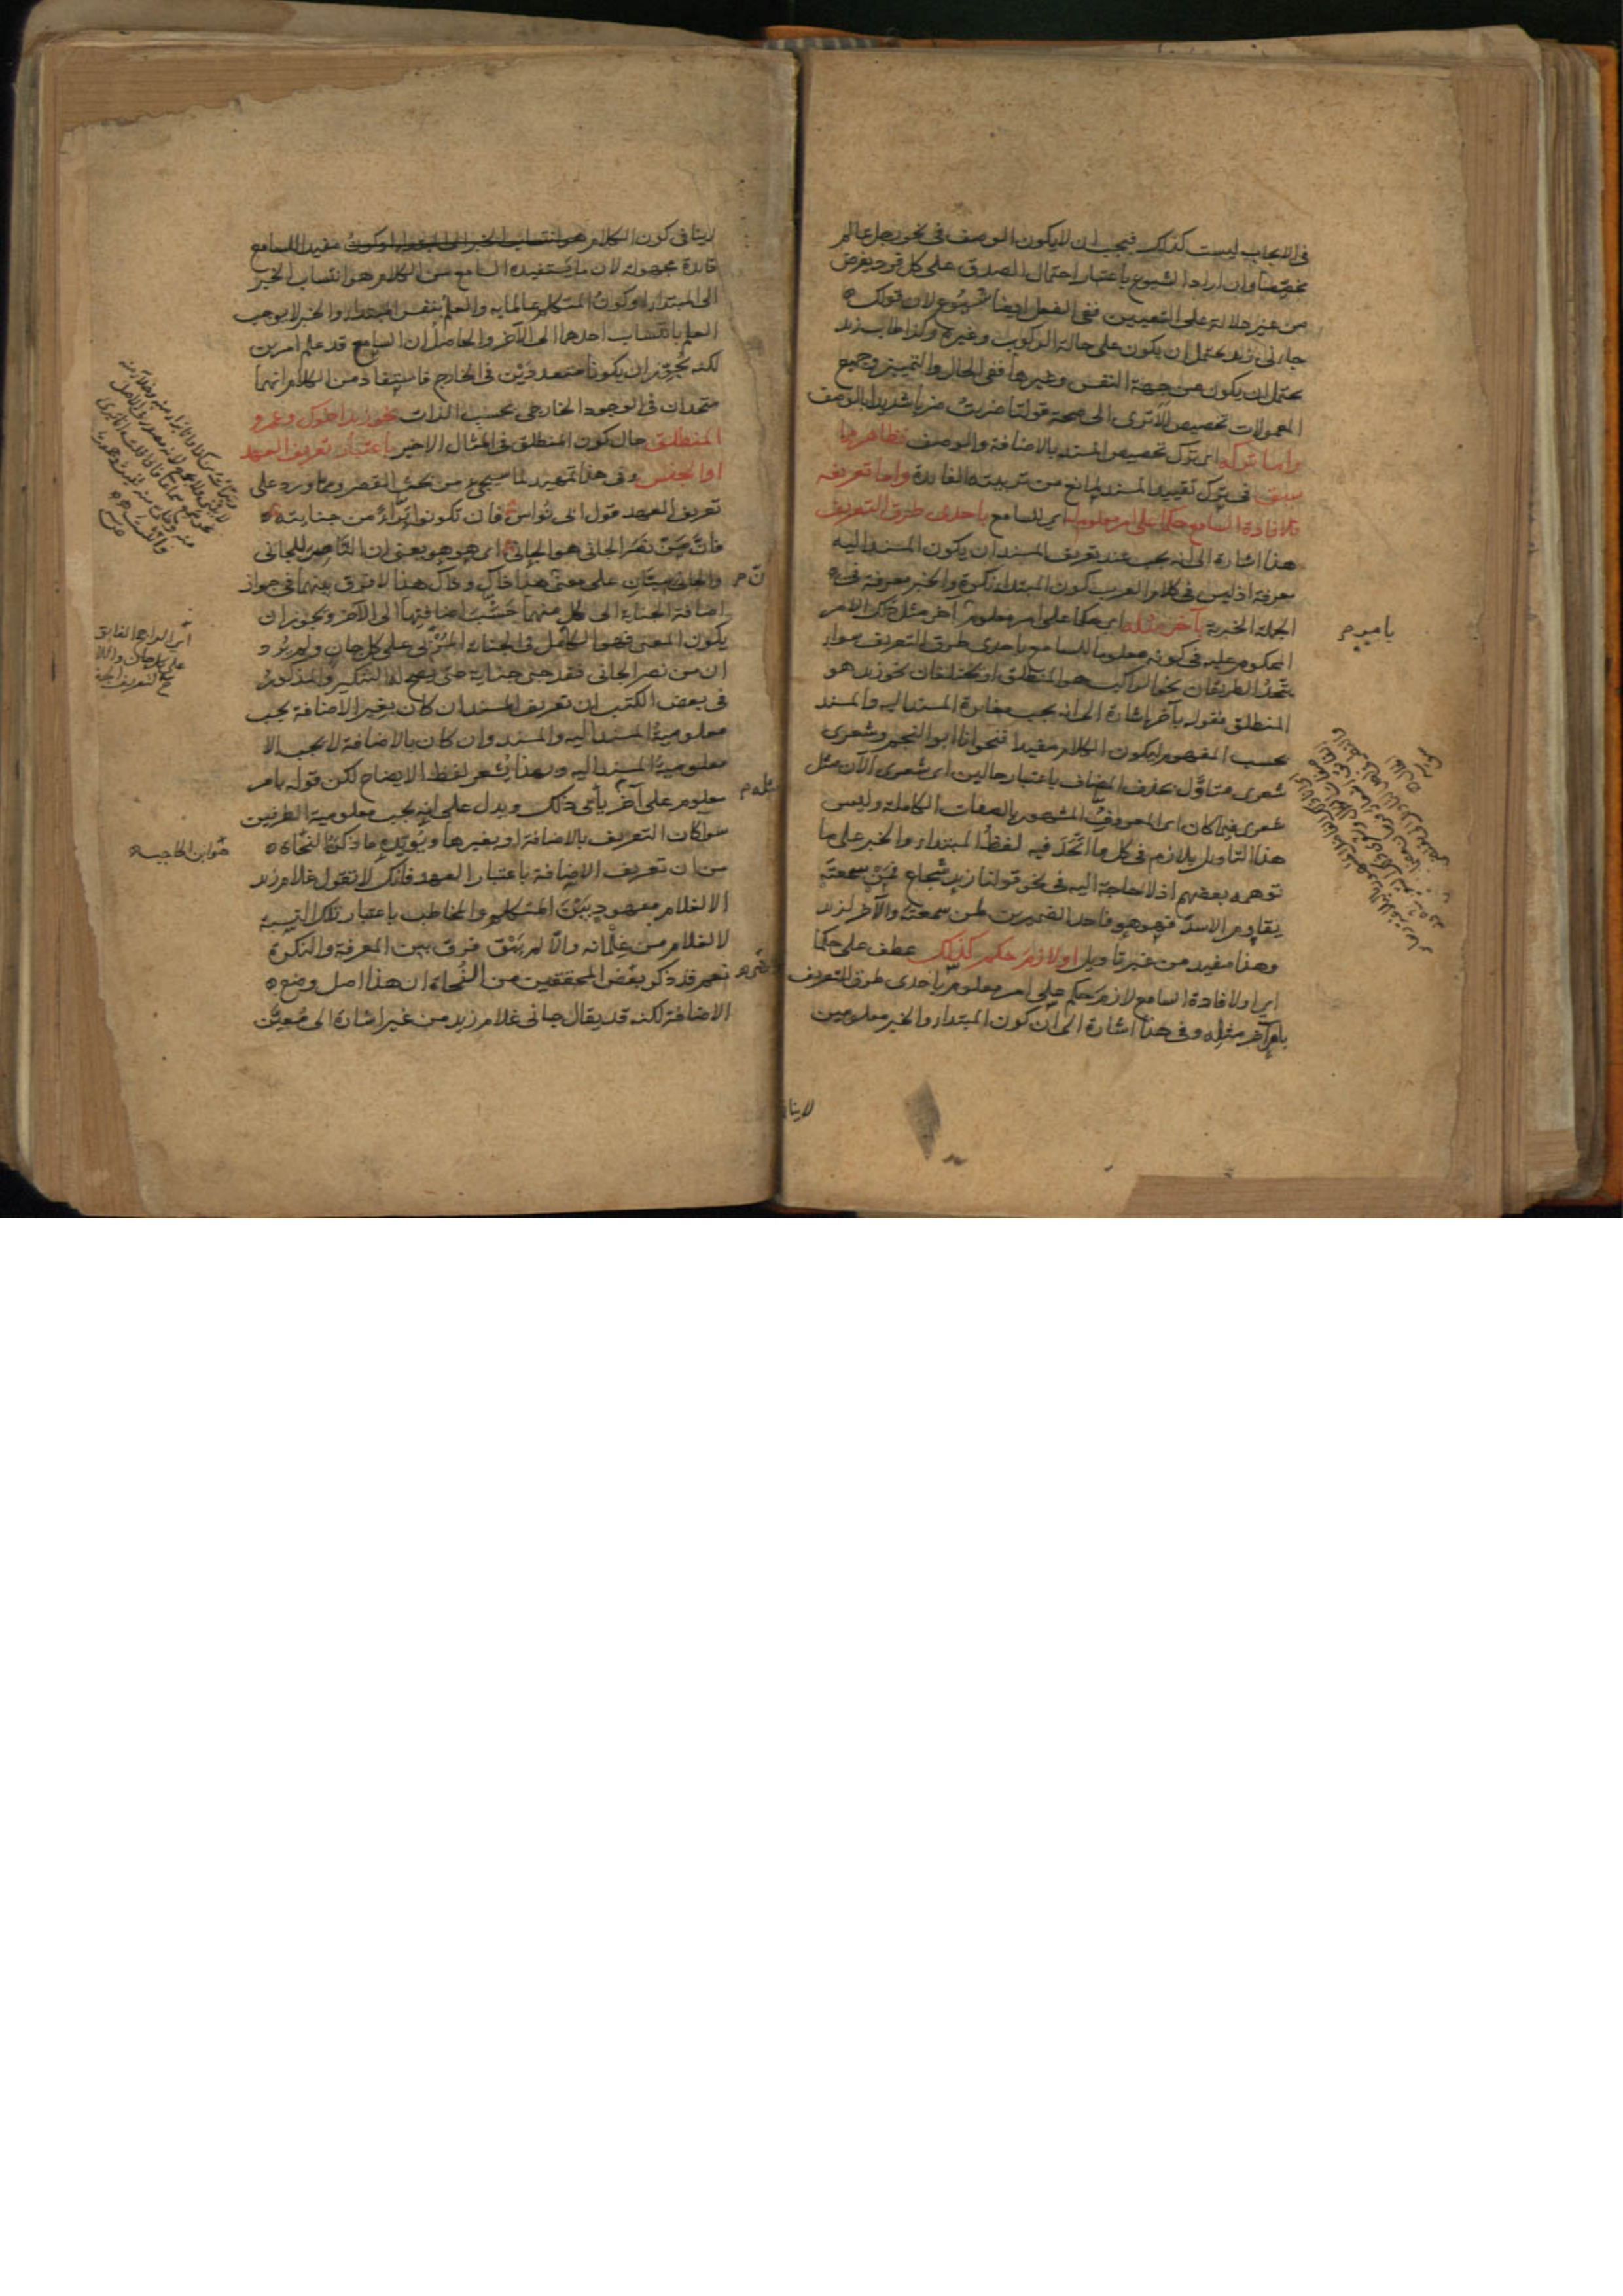 في الايجاب ليست كذلك فيجب ان لا يكون الوصف في نحو رجل عالم
مخصصا وان اراد الشيوع باعتبار احتمال الصدق على كل فرد يفرض
من غير دلالة على التعيين ففي الفعل ايضا شيوع لان قولك
جاءني زيد يحتمل ان يكون على حالة الركوب وغيره وكذا طاب زيد
يحتمل ان يكون من جهة النفس وغيرها ففي الحال والتمييز وجميع
المعمولات تخصيص الا ترى الى صحة قولنا ضربت ضربا شديدا بالوصف
واما تركه اي ترك تخصيص المسند بالاضافة والوصف فظاهر مما
سبق في ترك تقييد المسند لمانع من تربية الفائدة واما تعريفه
فلافادة السامع حكما على امر معلوم اي السامع باحدى طرق التعريف
هذا اشارة الى انه يجب عند تعريف المسند ان يكون المسند اليه
معرفة اذ ليس في كلام العرب كون المبتدا نكرة والخبر معرفة في
الجملة الخبرية بآخر مثله اي حكما على امر معلوم بآخر مثل ذلك الامر
المحكوم عليه في كونه معلوما للسامع باحدى طرق التعريف سواء
يتحد الطريقان نحو الراكب هو المنطلق او يختلفان نحو زيد هو
المنطلق فقوله بآخر اشارة الى انه يجب مغايرة المسند اليه والمسند
بحسب المفهوم ليكون الكلام مفيدا فنحو انا ابو النجم وشعري
شعري متاول بحذف المضاف باعتبار حالين اي شعري الآن مثل
شعري فيما كان اي المعروف المشهور بالصفات الكاملة وليس
هذا التاويل بلازم في كل ما اتحد فيه لفظ المبتدا والخبر على ما
توهمه بعضهم اذ لا حاجة اليه في نحو قولنا زيد شجاع فمن سمعته
يقاوم الاسد فهو هو فاحد الضميرين لمن سمعته والآخر لزيد
وهذا مفيد من غير تاويل او لازم حكم كذلك عطف على حكما
اي او لافادة السامع لازم حكم على امر معلوم باحدى طرق التعريف
بامر آخر مثله وفي هذا اشارة الى ان كون المبتدا والخبر معلومين
لاينا
لاينافي كون الكلام مفيدا للسامع
فائدة مجهولة لان ما يستفيده السامع من الكلام هو انتساب الخبر
الى المبتدا او كون المتكلم عالما به والعلم بنفس المبتدا والخبر لا يوجب
العلم بانتساب احدهما الى الآخر والحاصل ان السامع قد علم امرين
لكنه يجوز ان يكونا متعددين في الخارج فاستفاد من الكلام انهما
متحدان في الوجود الخارجي بحسب الذات نحو زيد اخوك وعمرو
المنطلق حال كون المنطلق في المثال الاخير باعتبار تعريف العهد
او الجنس وفي هذا تمهيد لما سيجيء من بحث القصر ومما ورد على
تعريف العهد قول ابي نواس فان تكونوا براء من جنايته
فان من نصر الجاني هو الجاني اي هو هو يعني ان الناصر للجاني
والجاني سيان على معنى هذا ذاك وذاك هذا لا فرق بينهما في جواز
اضافة الجناية الى كل منهما حسب اضافتها الى الآخر ويجوز ان
يكون المعنى فهو الكامل في الجناية المترقي على كل جان ولم يرد
ان من نصر الجاني فقد جنى جناية حتى يصح له التنكير والمذكور
في بعض الكتب ان تعريف المسند ان كان بغير الاضافة يجب
معلومية المسند اليه والمسند وان كان بالاضافة لا يجب الا
معلومية المسند اليه وبهذا يشعر لفظ الايضاح لكن قوله بامر
معلوم على آخر يأبى ذلك ويدل على انه يجب معلومية الطرفين
سواء كان التعريف بالاضافة او بغيرها ويؤيده ما ذكره النحاة
من ان تعريف الاضافة باعتبار العهد فانك لا تقول غلام زيد
الا لغلام معهود بين المتكلم والمخاطب باعتبار تلك النسبة
لا لغلام من غلمانه والا لم يبق فرق بين المعرفة والنكرة
نعم قد ذكر بعض المحققين من النحاة ان هذا اصل وضع
الاضافة لكنه قد يقال جاءني غلام زيد من غير اشارة الى معين
مثله م
هو ابن الحاجب